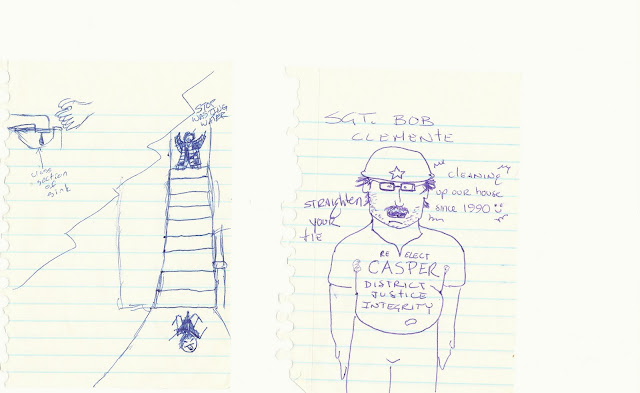 STOP
WASTING
WATER
CROSS
-SECTION
OF
SINK
SGT. BOB
CLEMENTE
STRAIGHTEN
YOUR
TIE
CLEANING
up our house
since 1990
RE ELECT
CASPER
DISTRICT
JUSTICE
INTEGRITY